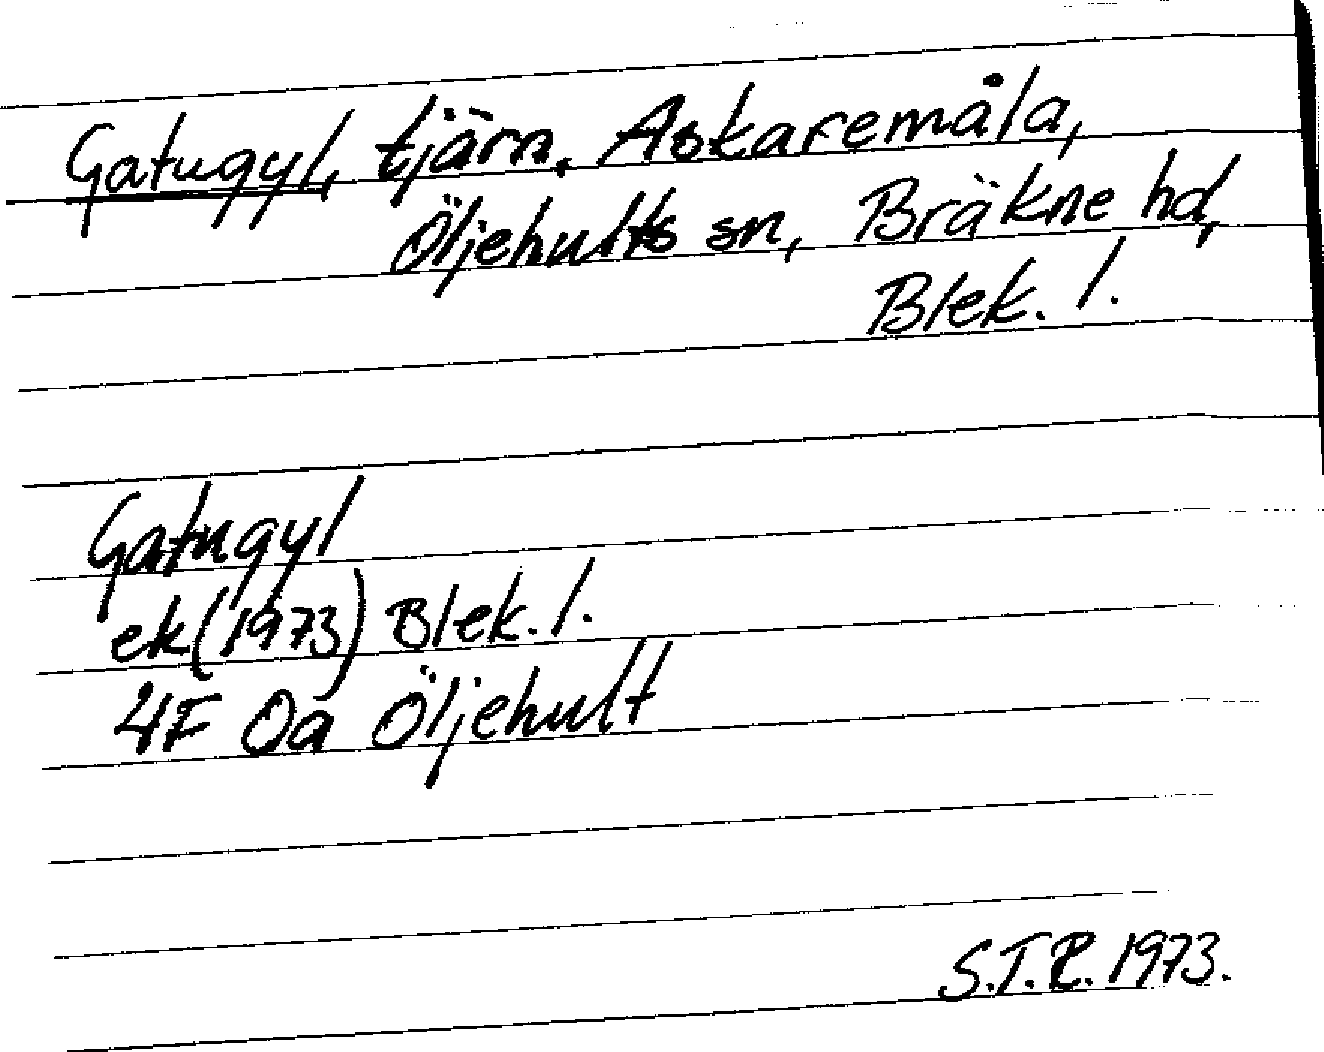 Gatugyl, tjärn, Askaremåla,
Öljehults sn, Bräkne hd,
Blek. l.
Gatugyl
ek (1973) Blek. l.
4F 0a Öljehult
S.T.R. 1973.